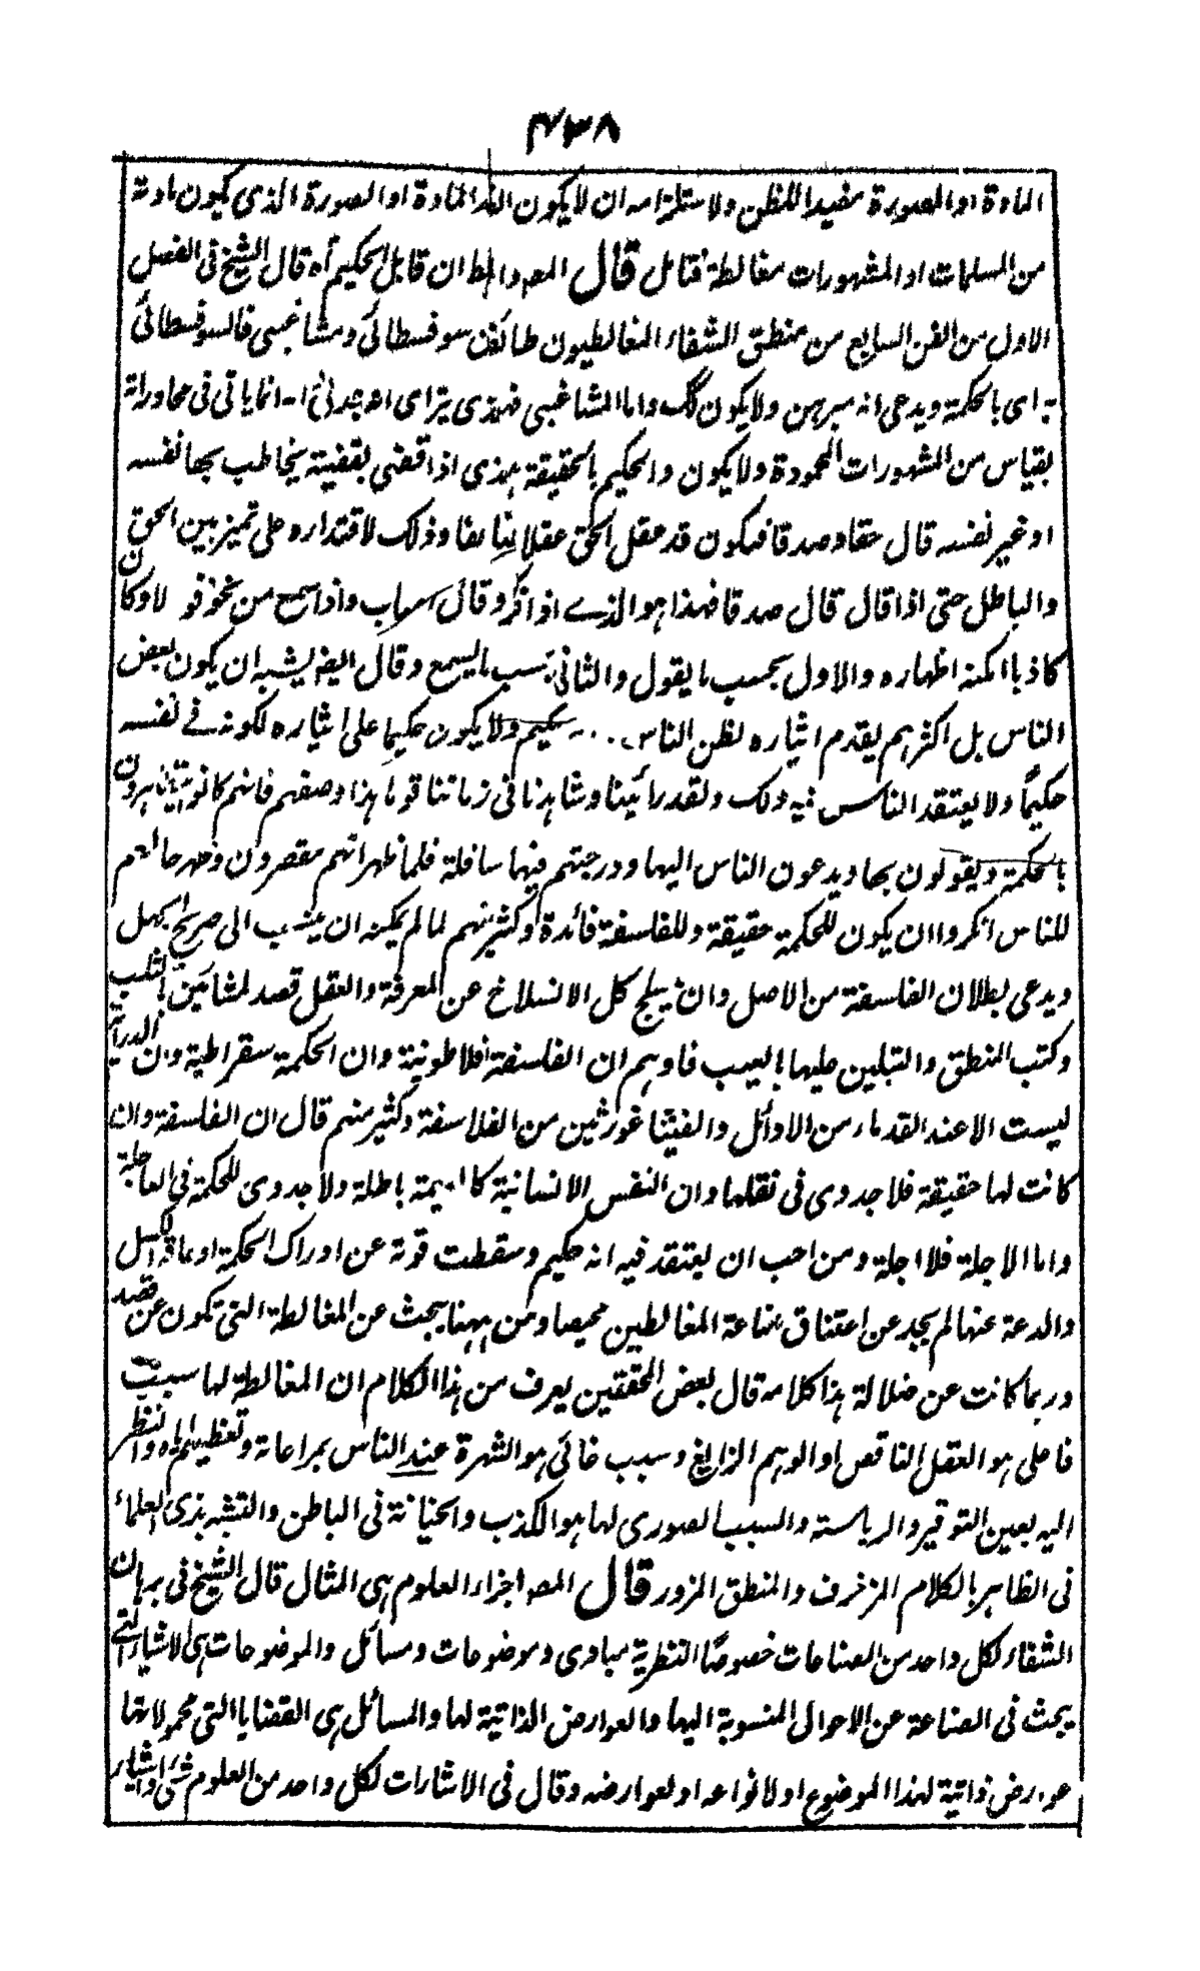 ٤٣٨
المادة او الصورة مفيدا للظن ولاستلزامه ان لا يكون المادة او الصورة الذي يكون مادته
من المسلمات او المشهورات مغالطة فتامل قال المصـ والمط ان قابل الحكيم آه قال الشيخ في الفصل
الاول من الفن السابع من منطق الشفاء المغالطيون طائفتن سوفسطائي ومشاغبي فالسوفسطائي
يتراى بالحكمة ويدعي انه مبرهن ولا يكون كك واما المشاغبي فهو الذي يتراى انه جدلي انما ياتي في محاوراته
بقياس من المشهورات المحمودة ولا يكون والحكيم بالحقيقة هو الذي اذا قضى بقضية يخاطب بها نفسه
او غير نفسه قال حقا وصدقا فيكون قد عقل الحق عقلا مضاعفا وذلك لاقتداره على تميز بين الحق
والباطل حتى اذا قال قال صدقا فهذا هو الذي اذا فكر وقال اصاب واذا سمع من غيره قولا وكان
كاذبا امكنه اظهاره والاول بحسب ما يقول والثاني بحسب ما يسمع وقال ايضا يشبه ان يكون بعض
الناس بل اكثرهم يقدم ايثاره لظن الناس به حكيم ولا يكون حكيما على ايثاره لكونه في نفسه
حكيماً ولا يعتقد الناس فيه ذلك ولقد رأينا وشاهدنا في زماننا قوما هذا وصفهم فانهم كانوا يتظاهرون
بالحكمة ويقولون بها ويدعون الناس اليها ودرجتهم فيها سافلة فلما ظهر انهم مقصرون وظهر حالهم
للناس انكروا ان يكون للحكمة حقيقة وللفلاسفة فائدة وكثير منهم لما لم يمكنه ان ينسب الى صريح الجهل
ويدعي بطلان الفلسفة من الاصل وان ينسلخ كل الانسلاخ عن المعرفة والعقل قصد المشائين بالثلب
وكتب المنطق والبانين عليها بالعيب فاوهم ان الفلسفة افلاطونية وان الحكمة سقراطية وان الدراية
ليست الا عند القدماء من الاوائل والفيثاغورثيين من الفلاسفة وكثير منهم قال ان الفلسفة وان
كانت لها حقيقة فلا جدوى في نقلها وان النفس الانسانية كالبهيمة باطلة ولا جدوى للحكمة في العاجلة
واما الاجلة فلا اجلة ومن احب ان يعتقد فيه انه حكيم وسقطت قوته عن ادراك الحكمة او عاقه الكسل
والدعة عنها لم يجد عن اعتناق صناعة المغالطين محيصا ومن ههنا يبحث عن المغالطة التي تكون عن قصد
وربما كانت عن ضلالة هذا كلامه قال بعض المحققين يعرف من هذا الكلام ان المغالطة لها سبب
فاعلي هو العقل الناقص او الوهم الزايغ وسبب غائي هو الشهرة عند الناس بمراعاته وتعظيمهم اياه والنظر
اليه بعين التوقير والرياسته والسبب الصوري لها هو الكذب والخيانة في الباطن والتشبه بذي العلماء
في الظاهر بالكلام المزخرف والمنطق المزور قال المصـ اجزاء العلوم هي المثال قال الشيخ في برهان
الشفاء لكل واحد من الصناعات خصوصًا النظرية مبادي وموضوعات ومسائل والموضوعات هي الاشياء التي
يبحث في الصناعة عن الاحوال المنسوبة اليها والعوارض الذاتية لها والمسائل هي القضايا التي محمولاتها
عوارض ذاتية لهذا الموضوع او لانواعه او لعوارضه وقال في الاشارات لكل واحد من العلوم شئ او اشياء